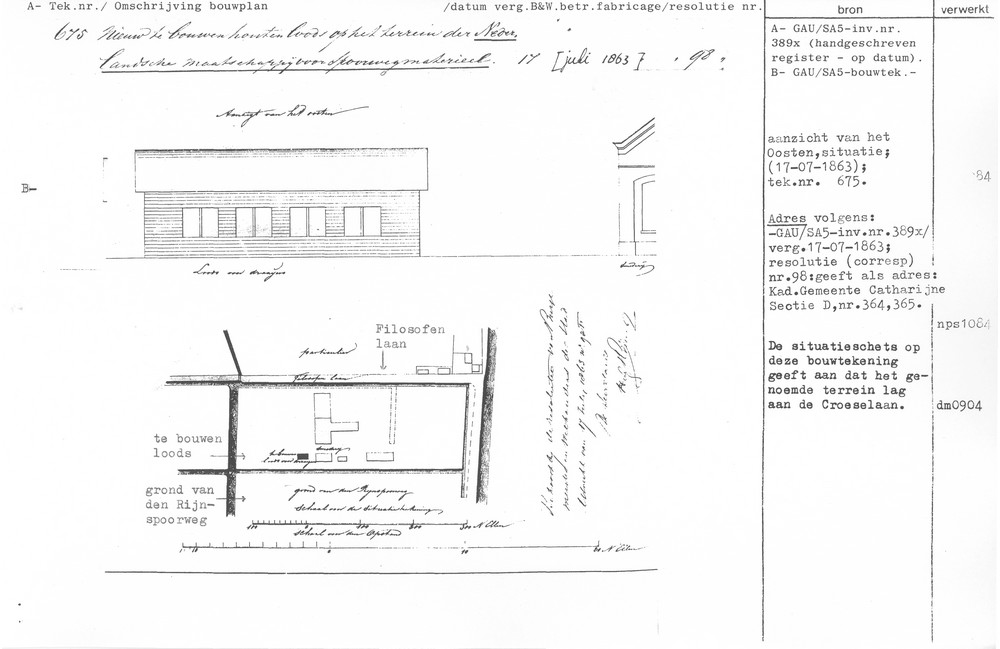 A- Tek.nr./ Omschrijving bouwplan /datum verg.B&W.betr.fabricage/resolutie nr.
675 Nieuw te bouwen houten loods op het terrein der Neder,
landsche maatschappij voor spoorwegmaterieel. 17 [juli 1863] " 98 "
Aanzigt van het oosten
B-
Loods voor
Filosofen
laan
particulier
filosofen laan
te bouwen
loods
grond van
den Rijn-
spoorweg
grond van den Rijnspoorweg
Schaal voor de situatieteekening
100 0 100 200 300 N. Ellen
Schaal voor den Opstand
10 0 10 20 N. Ellen
Utrecht van 17 July 1863 No 98
bron
A- GAU/SA5-inv.nr.
389x (handgeschreven
register - op datum).
B- GAU/SA5-bouwtek.-
aanzicht van het
Oosten,situatie;
(17-07-1863);
tek.nr. 675.
Adres volgens:
-GAU/SA5-inv.nr.389x/
verg.17-07-1863;
resolutie (corresp)
nr.98:geeft als adres:
Kad.Gemeente Catharijne
Sectie D,nr.364,365.
De situatieschets op
deze bouwtekening
geeft aan dat het ge-
noemde terrein lag
aan de Croeselaan.
verwerkt
84
nps1084
dm0904